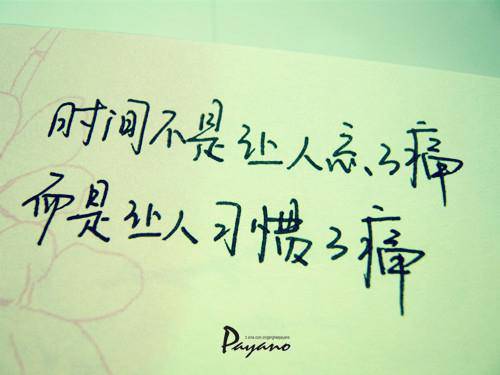 时间不是让人忘了痛
而是让人习惯了痛
Payano